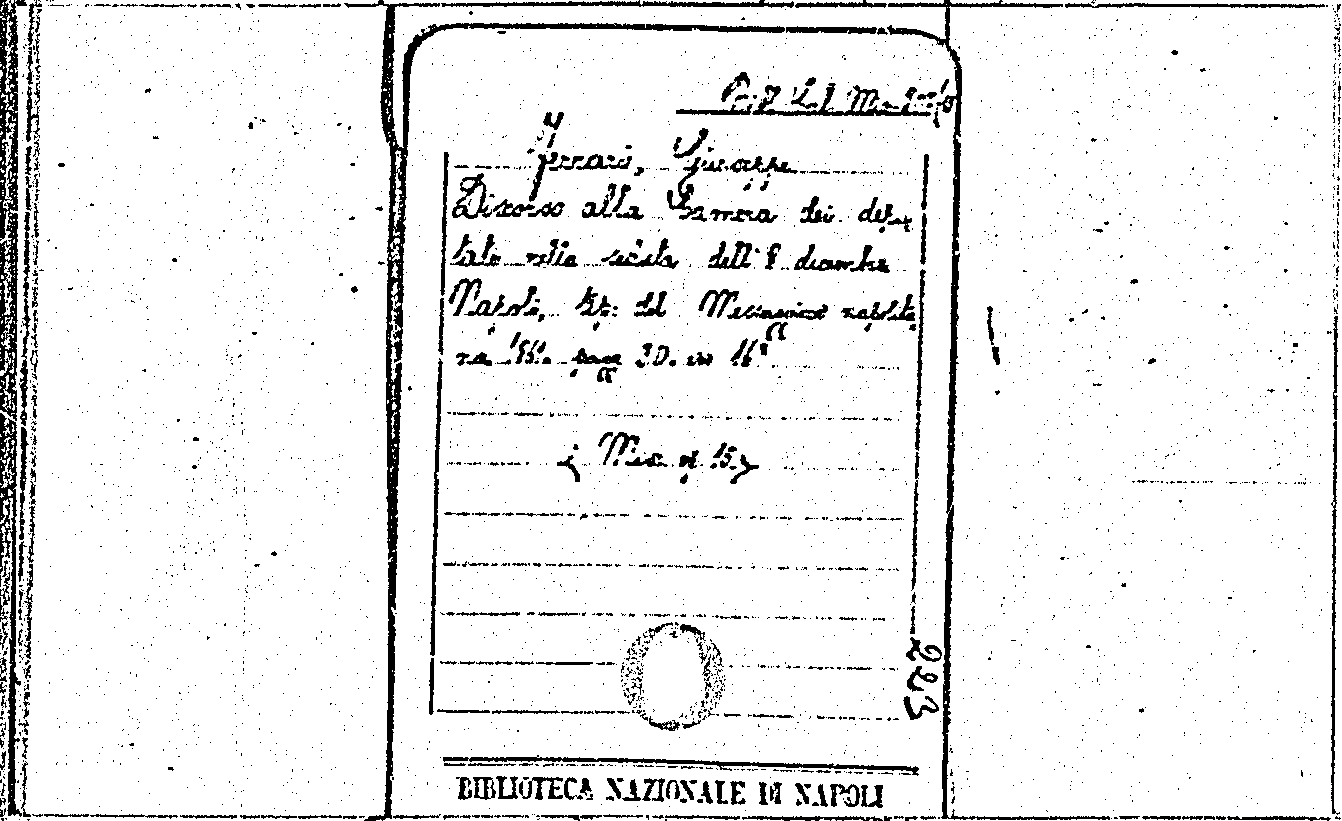 Ferrari, Giuseppe
Discorso alla Camera dei depu
tati nella seduta dell' 8 dicembre
Napoli, tip: del Messaggiere napolita
no 1861. pagg 30. in 16°
(Misc. 15.)
223
BIBLIOTECA NAZIONALE DI NAPOLI